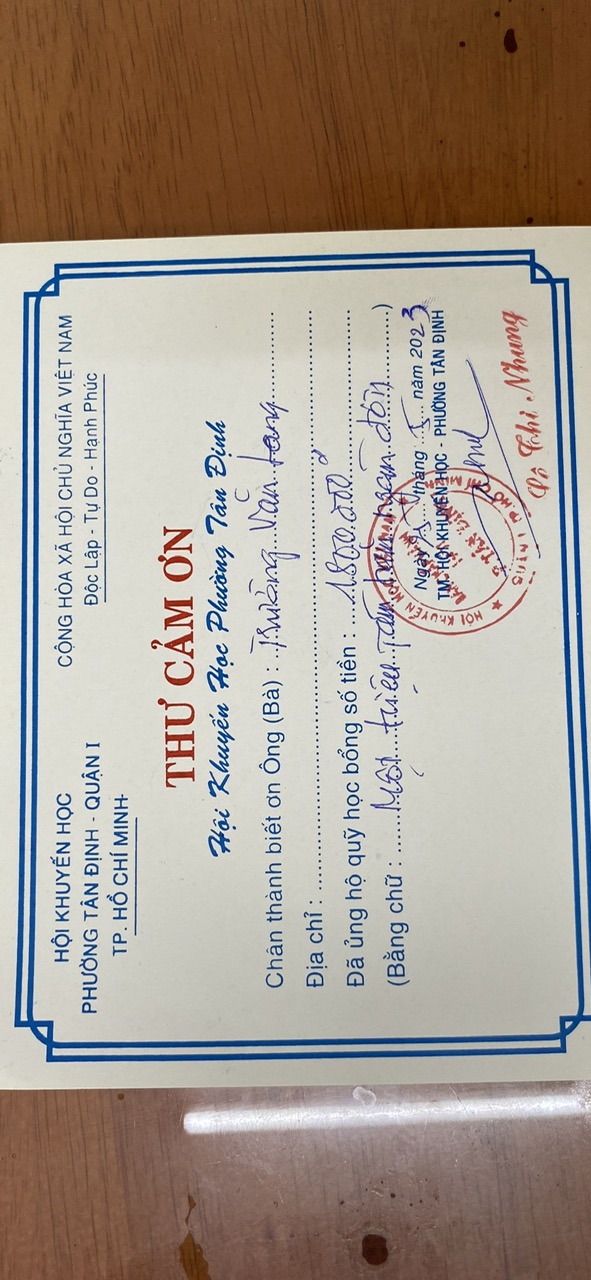 HỘI KHUYẾN HỌC
PHƯỜNG TÂN ĐỊNH - QUẬN I
TP. HỒ CHÍ MINH
CỘNG HÒA XÃ HỘI CHỦ NGHĨA VIỆT NAM
Độc Lập - Tự Do - Hạnh Phúc
THƯ CẢM ƠN
Hội Khuyến Học Phường Tân Định
Chân thành biết ơn Ông (Bà) : Trường Văn Lang
Địa chỉ :
Đã ủng hộ quỹ học bổng số tiền : 1.800.000đ
(Bằng chữ : Một triệu tám trăm ngàn đồng)
Ngày tháng 5 năm 2023
TM. HỘI KHUYẾN HỌC - PHƯỜNG TÂN ĐỊNH
HỘI KHUYẾN HỌC
Thị Nhung